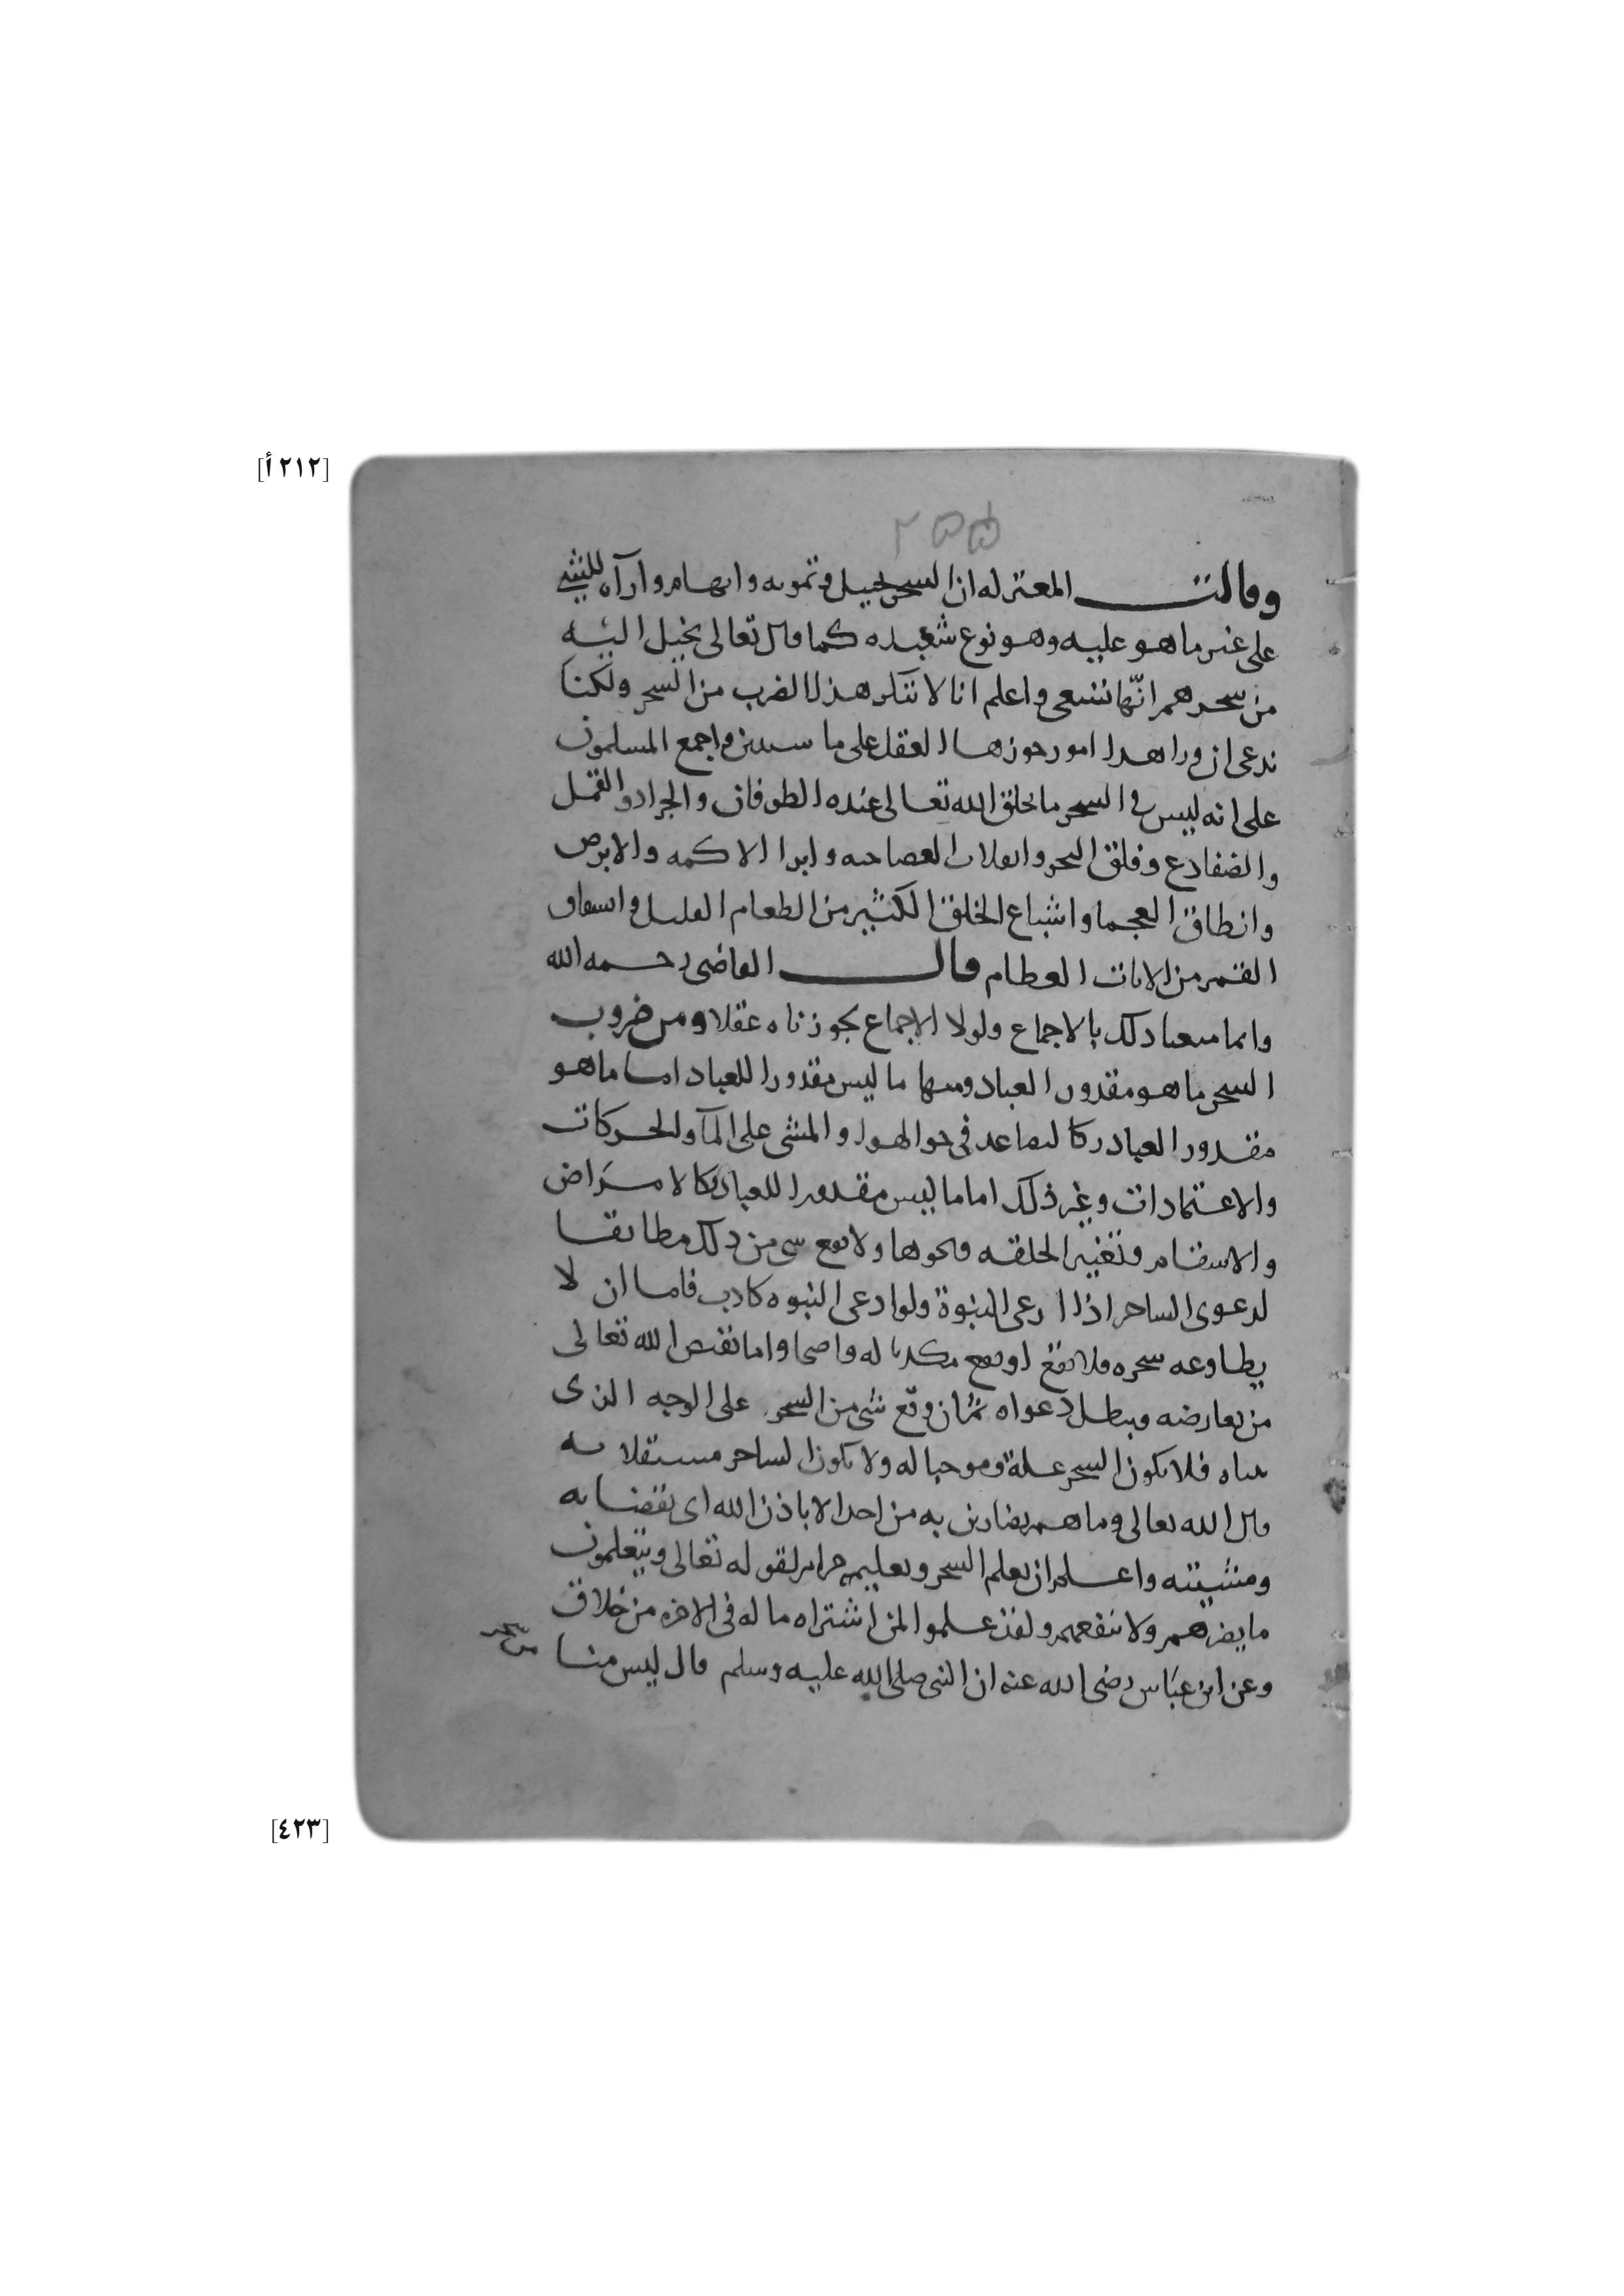 [٢١٢ أ]
٢٥٥
وقالت المعتزله ان السحر تخييل وتمويه وايهام وارآه للشي
على غير ما هو عليه وهو نوع شعبده كما قال تعالى يخيل اليه
من سحرهم انّها تسعى واعلم انا لا ننكر هذا الضرب من السحر ولكنا
ندعى ان ورا هذا امور جوزها العقل على ما سنبين واجمع المسلمون
على انه ليس في السحر ما يخلق الله تعالى عنده الطوفان والجراد والقمل
والضفادع وفلق البحر وانقلاب العصا حيه وابرا الاكمه والابرص
وانطاق العجما واشباع الخلق الكثير من الطعام القليل وانشقاق
القمر من الايات العظام قال القاضى رحمه الله
وانما منعنا ذلك بالاجماع ولولا الاجماع لجوزناه عقلا ومن ضروب
السحر ما هو مقدور العباد ومنها ما ليس مقدورا للعباد اما ما هو
مقدور العباد كالتصاعد فى جو الهوا والمشى على المآ والحركات
والاعتمادات وغير ذلك اما ما ليس مقدورا للعباد كالامراض
والاسقام وتغيير الخلقه ونحوها ولا يقع شى من ذلك مطابقا
لدعوى الساحر اذا ادعى النبوة ولو ادعى النبوه كاذب فاما ان لا
يطاوعه سحره فلا يقع او يقع مكذبا له واما يقيض الله تعالى
من يعارضه ويبطل دعواه ثم ان وقع شى من السحر على الوجه الذى
بيناه فلا يكون السحر علة وموجبا له ولا يكون الساحر مستقلا به
قال الله تعالى وما هم بضارين به من احد الا باذن الله اى بقضايه
ومشيته واعلم ان تعلم السحر وتعليمه حرام لقوله تعالى ويتعلمون
ما يضرهم ولا ينفعهم ولقد علموا لمن اشتراه ما له فى الاخره من خلاق
وعن ابن عباس رضى الله عنه ان النبى صلى الله عليه وسلم قال ليس منا من سحر
[٤٢٣]